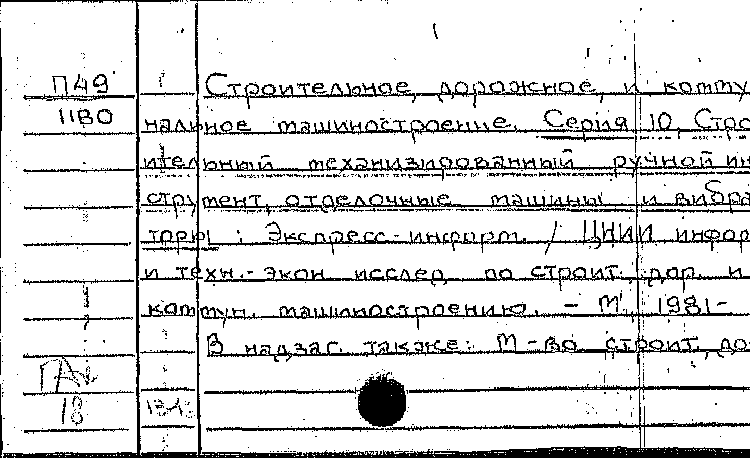 П49 Строительное, дорожное, и комму
11В0 нальное машиностроение. Серия 10, Стро
ительный механизированный ручной ин
струмент, отделочные машины и вибра
торы : Экспресс-информ. / ЦНИИ инфор
и техн.-экон исслед по строит., дор. и
коммун. машиностроению. – М, 1981–
В надзаг. также: М-во строит, до
18